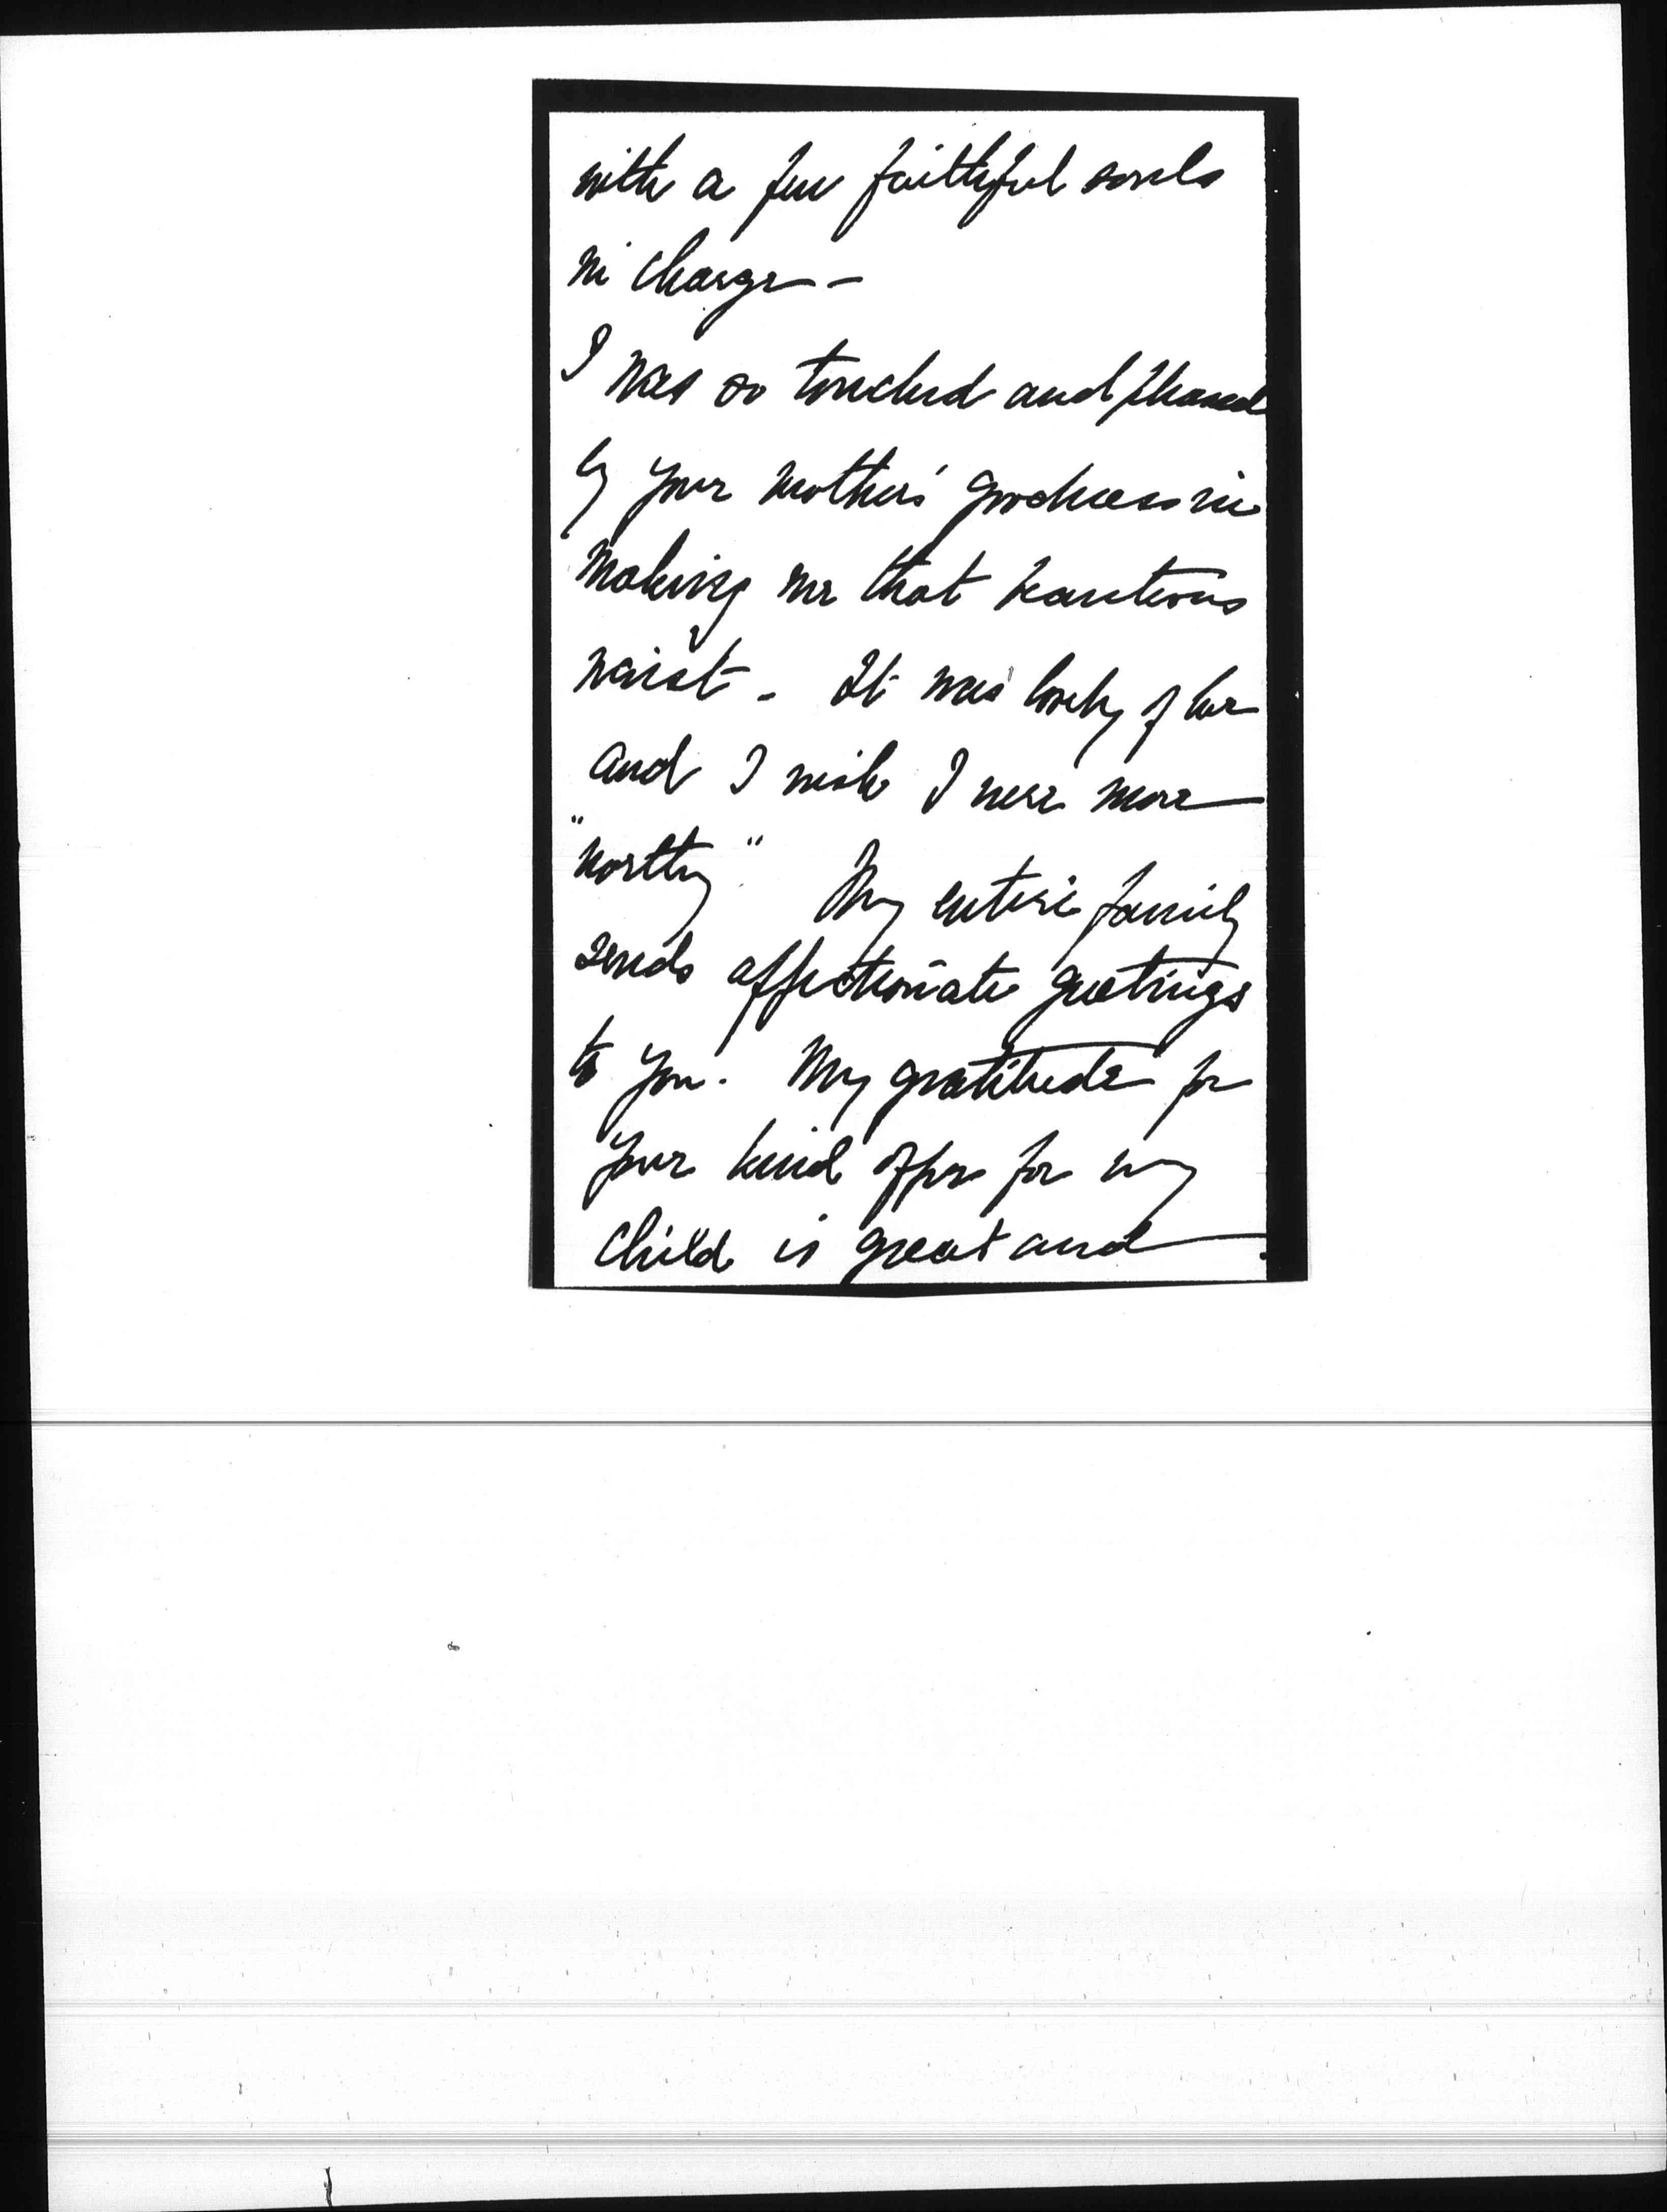 with a few faithful souls
in charge –
I was so touched and pleased
by your mother's goodness in
making me that beauteous
waist – It was lovely of her
and I wish I were more
"worthy" My entire family
sends affectionate greetings
to you. My gratitude for
your kind offer for my
child is great and